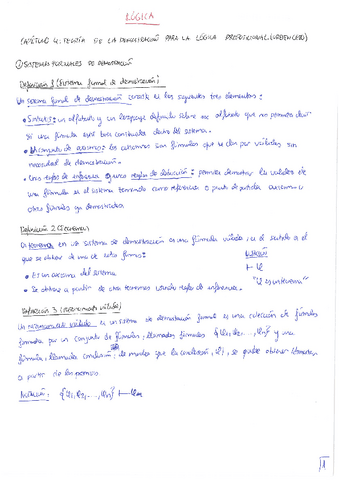 LÓGICA
CAPÍTULO 4: TEORÍA DE LA DEMOSTRACIÓN PARA LA LÓGICA PROPOSICIONAL (ORDEN CERO)
① SISTEMAS FORMALES DE DEMOSTRACIÓN
Definición 1 (Sistema formal de demostración)
Un sistema formal de demostración consta de los siguientes tres elementos:
• Sintaxis: un alfabeto y un lenguaje definido sobre ese alfabeto que nos permite decir
si una fórmula está bien construida dentro del sistema.
• Un conjunto de axiomas: los axiomas son fórmulas que se dan por válidas sin
necesidad de demostración.
• Unas reglas de inferencia o reglas de deducción: permiten demostrar la validez de
una fórmula en el sistema tomando como referencia o punto de partida axiomas u
otras fórmulas ya demostradas.
Definición 2 (Teorema)
Un teorema en un sistema de demostración es una fórmula válida, en el sentido de
que se obtiene de una de estas formas:
NOTACIÓN
• Es un axioma del sistema
⊢ φ
• Se obtiene a partir de otros teoremas usando reglas de inferencia.
"φ es un teorema"
Definición 3 (razonamiento válido)
Un razonamiento válido en un sistema de demostración formal es una colección de fórmulas
formada por un conjunto de fórmulas, llamadas premisas {φ1, φ2, ..., φn} y una
fórmula, llamada conclusión, de modo que la conclusión, φ, se puede obtener
a partir de las premisas.
NOTACIÓN: {φ1, φ2, ..., φn} ⊢
1